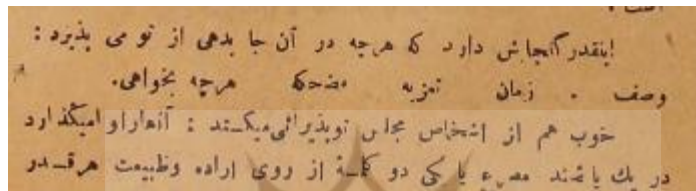 اینقدر گنجایش دارد که هرچه در آن جا بدهی از تو می پذیرد :
وصف . زمان تعزیه مضحکه هرچه بخواهی.
خوب هم از اشخاص مجلس توپذیرائی میکند : آنهارا وامیگذارد
در یك یا کی دو کلمهٔ از روی اراده وطبیعت هرقدر